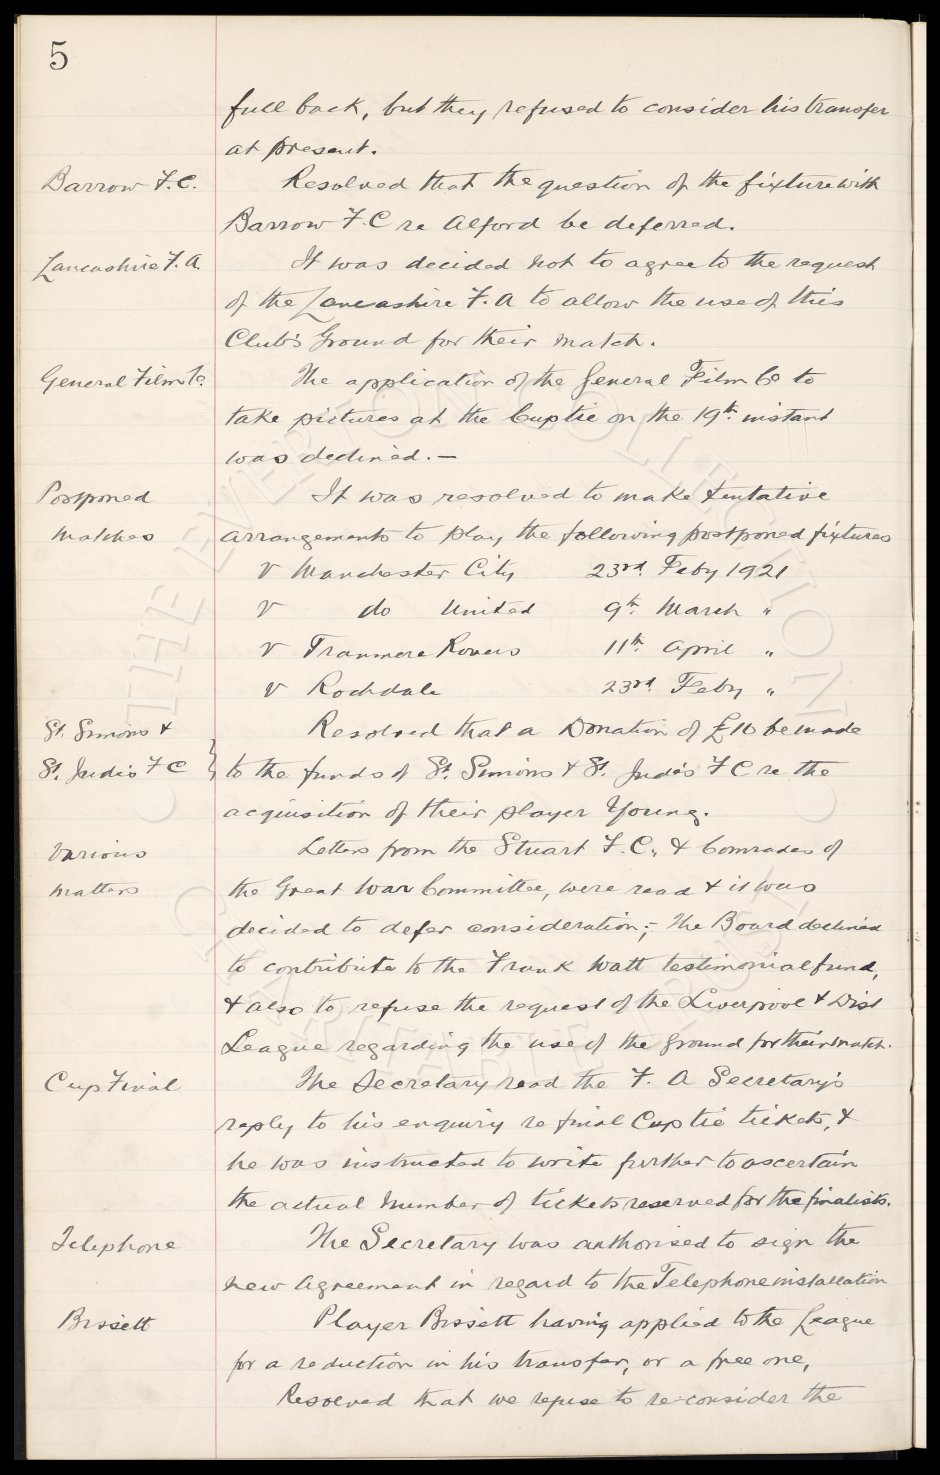 5
full back, but they refused to consider his transfer
at present.
Barrow F.C. Resolved that the question of the fixture with
Barrow F.C re Alford be deferred.
Lancashire F.A. It was decided not to agree to the request
of the Lancashire F.A to allow the use of this
Club's Ground for their match.
General Film Co. The application of the General Film Co to
take pictures at the Cuptie on the 19th instant
was declined.—
Postponed It was resolved to make tentative
Matches arrangements to play the following postponed fixtures
V Manchester City 23rd Feby 1921
V do United 9th March "
V Tranmere Rovers 11th April "
V Rochdale 23rd Feby "
St. Simons & Resolved that a Donation of £10 be made
St. Jude's F C } to the funds of St. Simons & St. Jude's F C re the
acquisition of their player Young.
Various Letters from the Stuart F.C., & Comrades of
Matters the Great War Committee, were read & it was
decided to defer consideration;- The Board declined
to contribute to the Frank Watt testimonial fund,
& also to refuse the request of the Liverpool & Dist
League regarding the use of the ground for their match.
Cup Final The Secretary read the F. A Secretary's
reply to his enquiry re final Cup tie tickets, &
he was instructed to write further to ascertain
the actual number of tickets reserved for the finalists.
Telephone The Secretary was authorised to sign the
new Agreement in regard to the Telephone installation
Bissett Player Bissett having applied to the League
for a reduction in his transfer, or a free one,
Resolved that we refuse to re-consider the
THE EVERTON COLLECTION
CHARITABLE TRUST